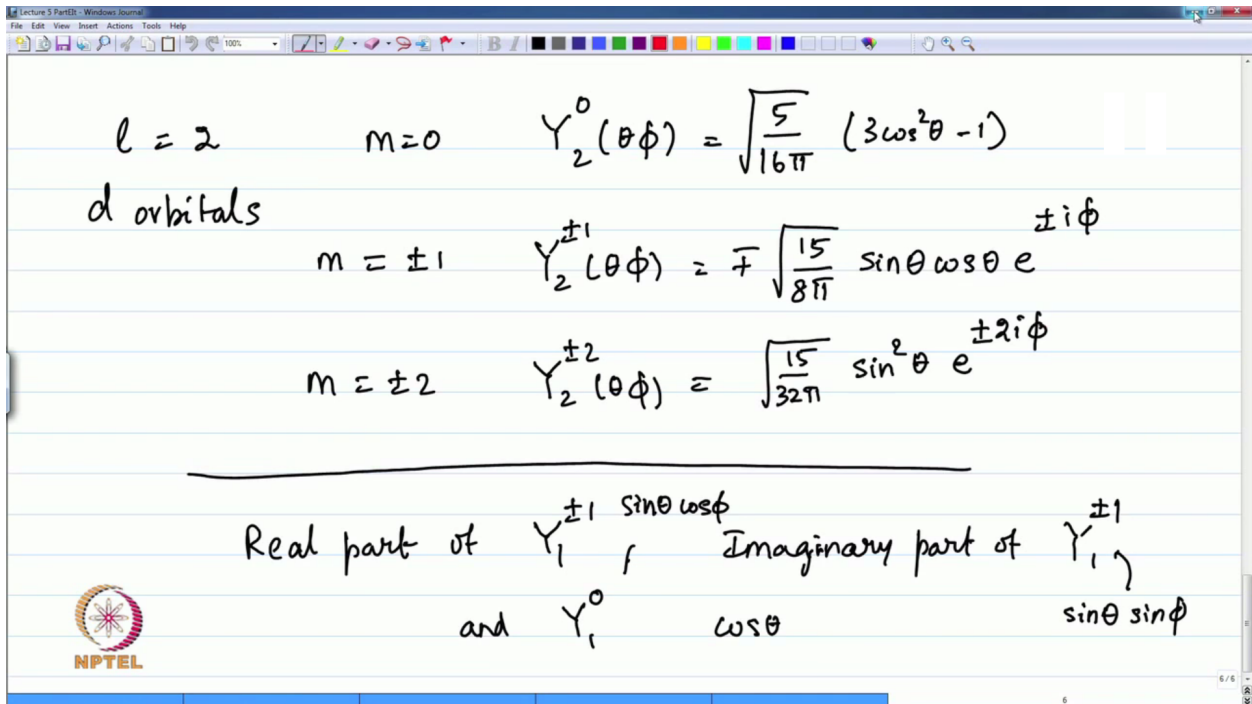 Lecture 5 PartEIt - Windows Journal
File Edit View Insert Actions Tools Help
100%
B I
l = 2 m=0 Y₂⁰(θφ) = √(5/16π) (3cos²θ -1)
d orbitals
m = ±1 Y₂^±1(θφ) = ∓ √(15/8π) sinθ cosθ e^±iφ
m = ±2 Y₂^±2(θφ) = √(15/32π) sin²θ e^±2iφ
Real part of Y₁^±1 sinθ cosφ, Imaginary part of Y₁^±1
and Y₁⁰ cosθ sinθ sinφ
NPTEL
6/6
6